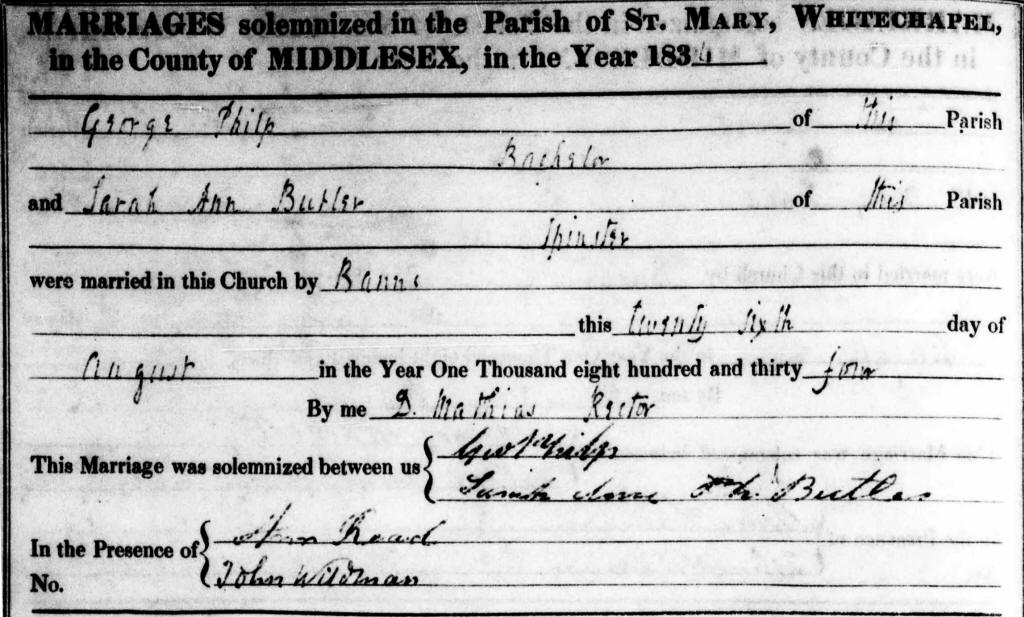 MARRIAGES solemnized in the Parish of ST. MARY, WHITECHAPEL,
in the County of MIDDLESEX, in the Year 1834
George Philp of this Parish
Bachelor
and Sarah Ann Butler of this Parish
Spinster
were married in this Church by Banns
this twenty sixth day of
August in the Year One Thousand eight hundred and thirty four
By me D. Mathias Rector
This Marriage was solemnized between us
Geo Philp
Sarah Anne Butler
In the Presence of Ann Read
John Wildman
No.